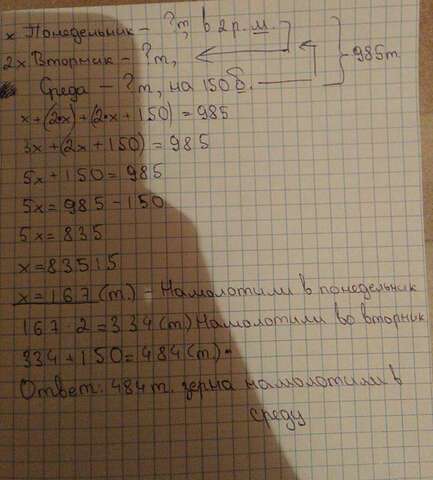 x Понедельник - ?т, в 2 р. м.
2x Вторник - ?т,
Среда - ?т, на 150 б.
985т
x+(2·x)+(2·x+150)=985
3x+(2x+150)=985
5x+150=985
5x=985-150
5x=835
x=835:5
x=167(т.) - Намолотили в понедельник
167·2=334(т) Намолотили во вторник
334+150=484(т.)-
Ответ: 484 т. зерна намолотили в
среду